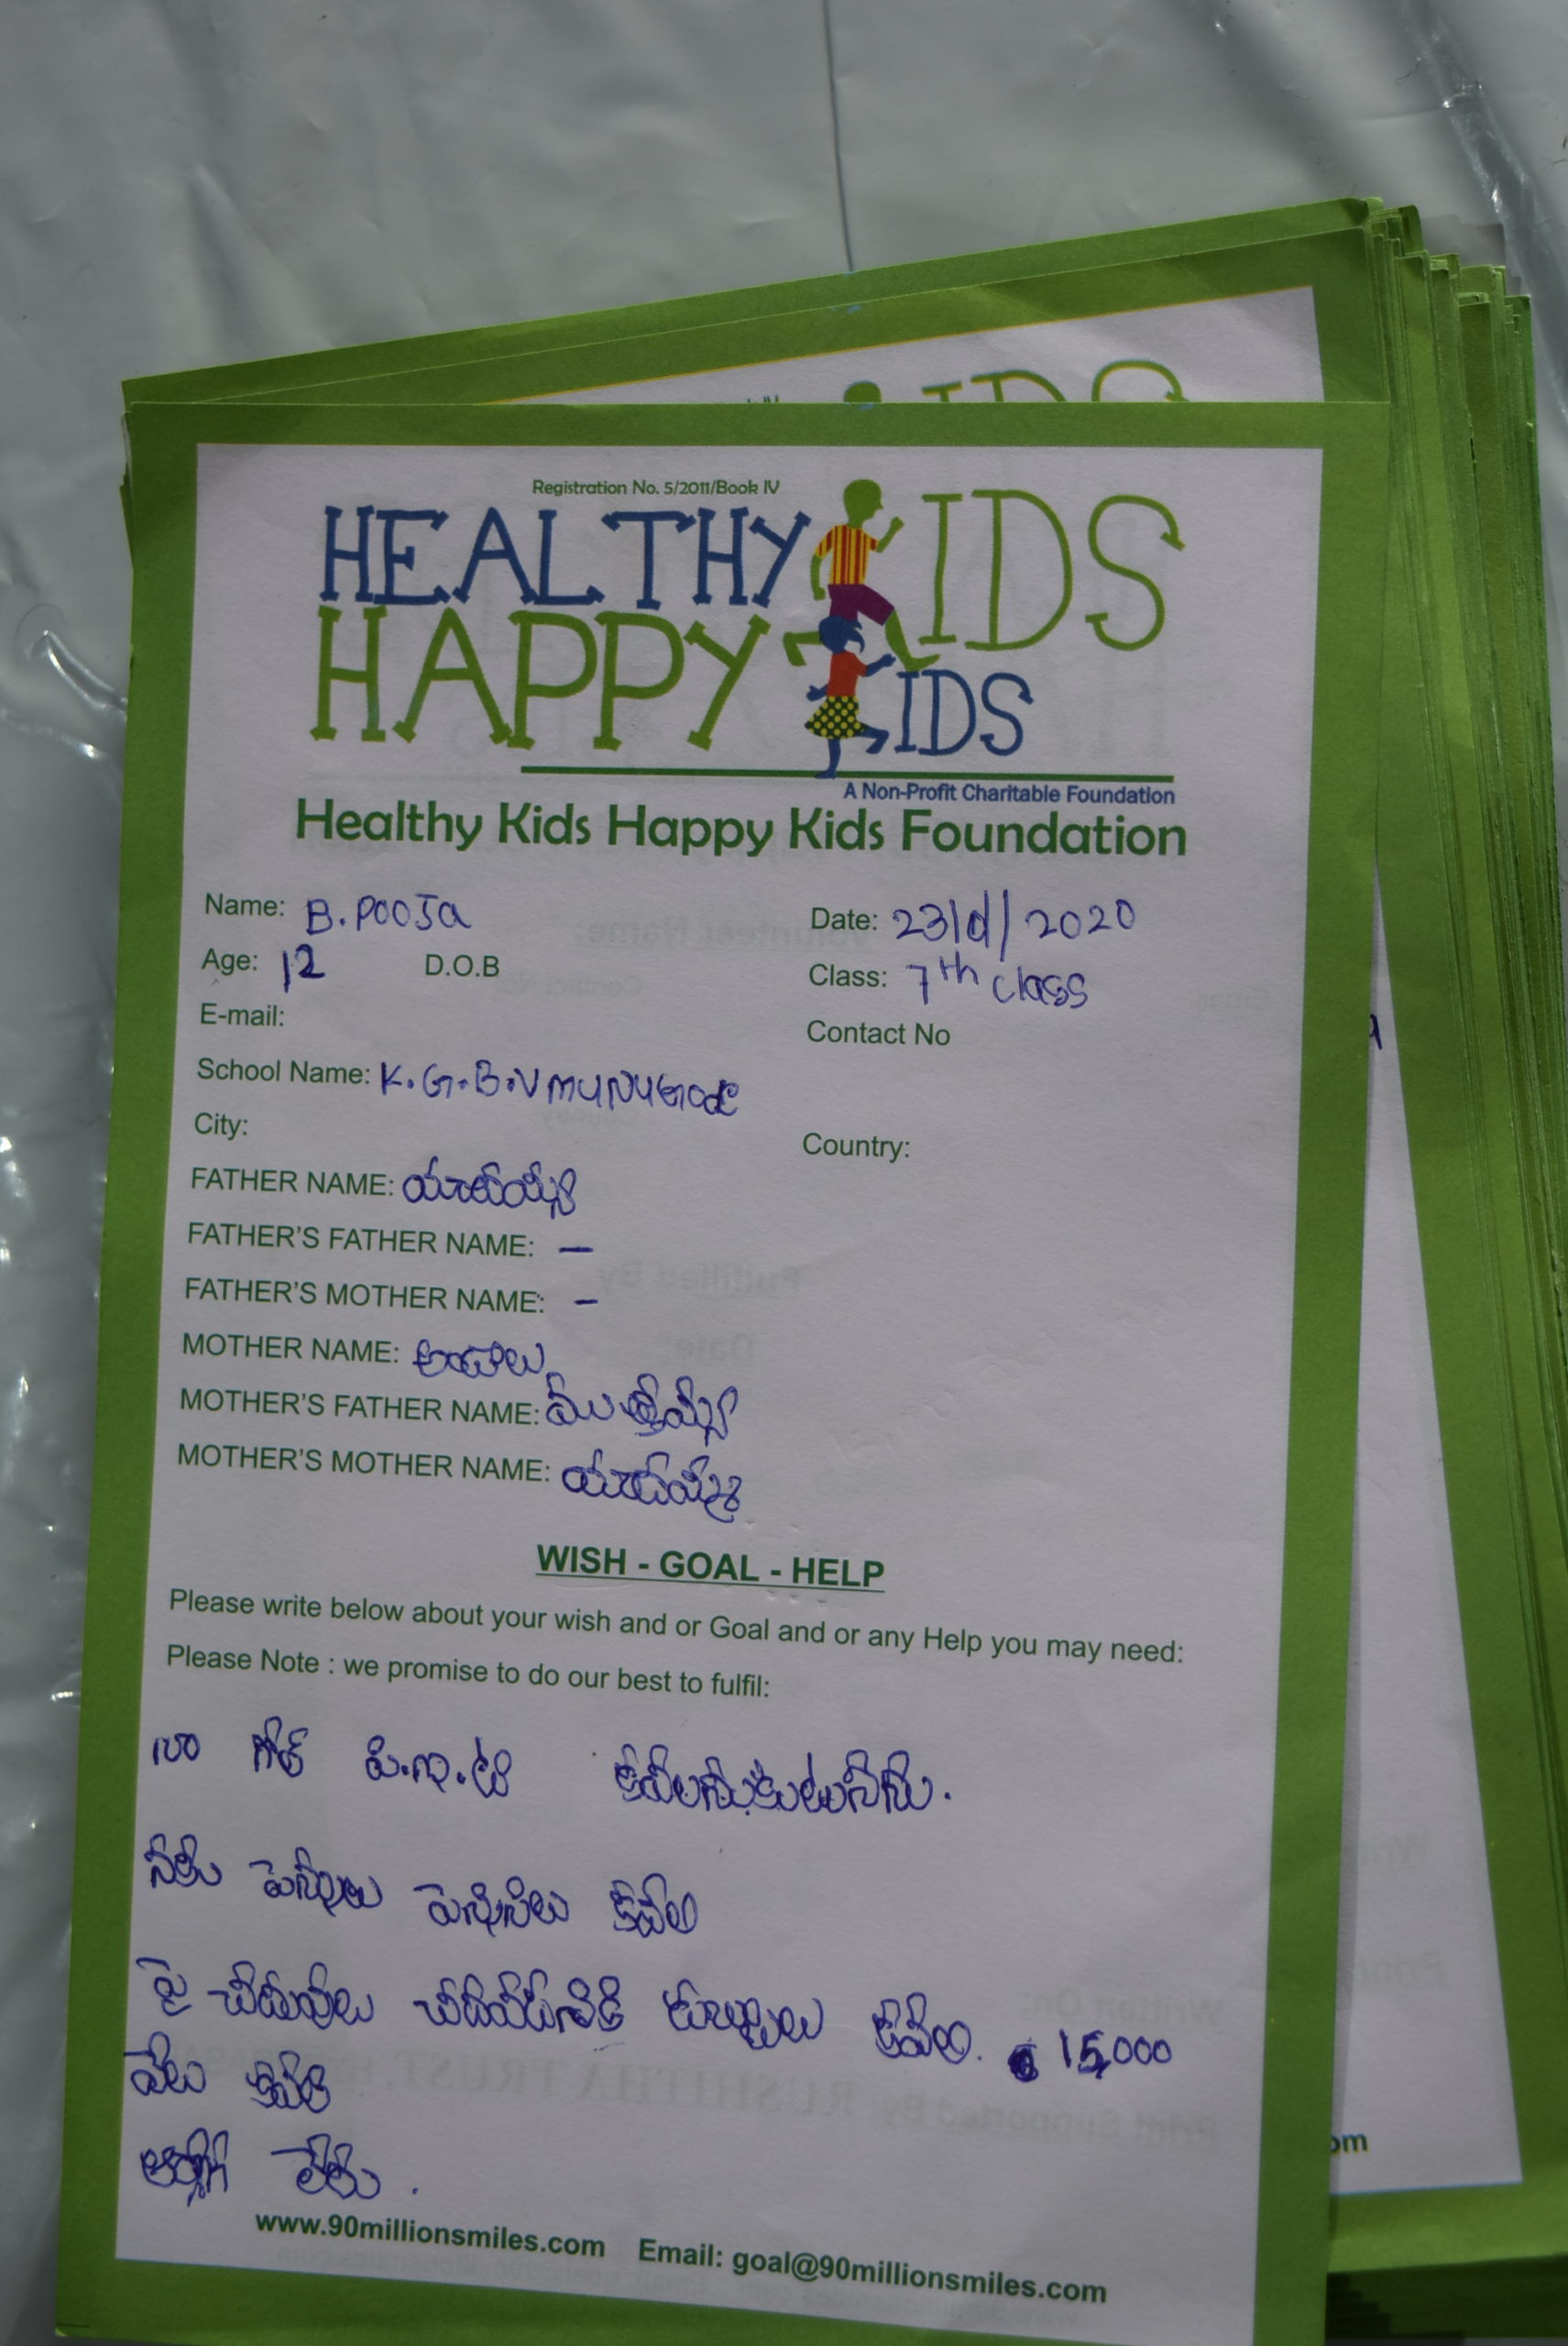 Registration No. 5/2011/Book IV
HEALTHY KIDS
HAPPY KIDS
A Non-Profit Charitable Foundation
Healthy Kids Happy Kids Foundation
Name: B. POOJa Date: 23/ /2020
Age: 12 D.O.B Class: 7th class
E-mail: Contact No
School Name: K.G.B.V MUNUGode
City: Country:
FATHER NAME: యాదయ్య
FATHER'S FATHER NAME: –
FATHER'S MOTHER NAME: –
MOTHER NAME: అండాలు
MOTHER'S FATHER NAME: ముత్తయ్య
MOTHER'S MOTHER NAME: యాదమ్మ
WISH - GOAL - HELP
Please write below about your wish and or Goal and or any Help you may need:
Please Note : we promise to do our best to fulfil:
నా గోల్ పి.ఇ.టి
నాకు పెన్నులు పెన్సిసిలు కావాలి
పై చదువులు డబ్బులు కావాలి. 15,000
వేలు కావాలి
లేరు.
www.90millionsmiles.com Email: goal@90millionsmiles.com
om